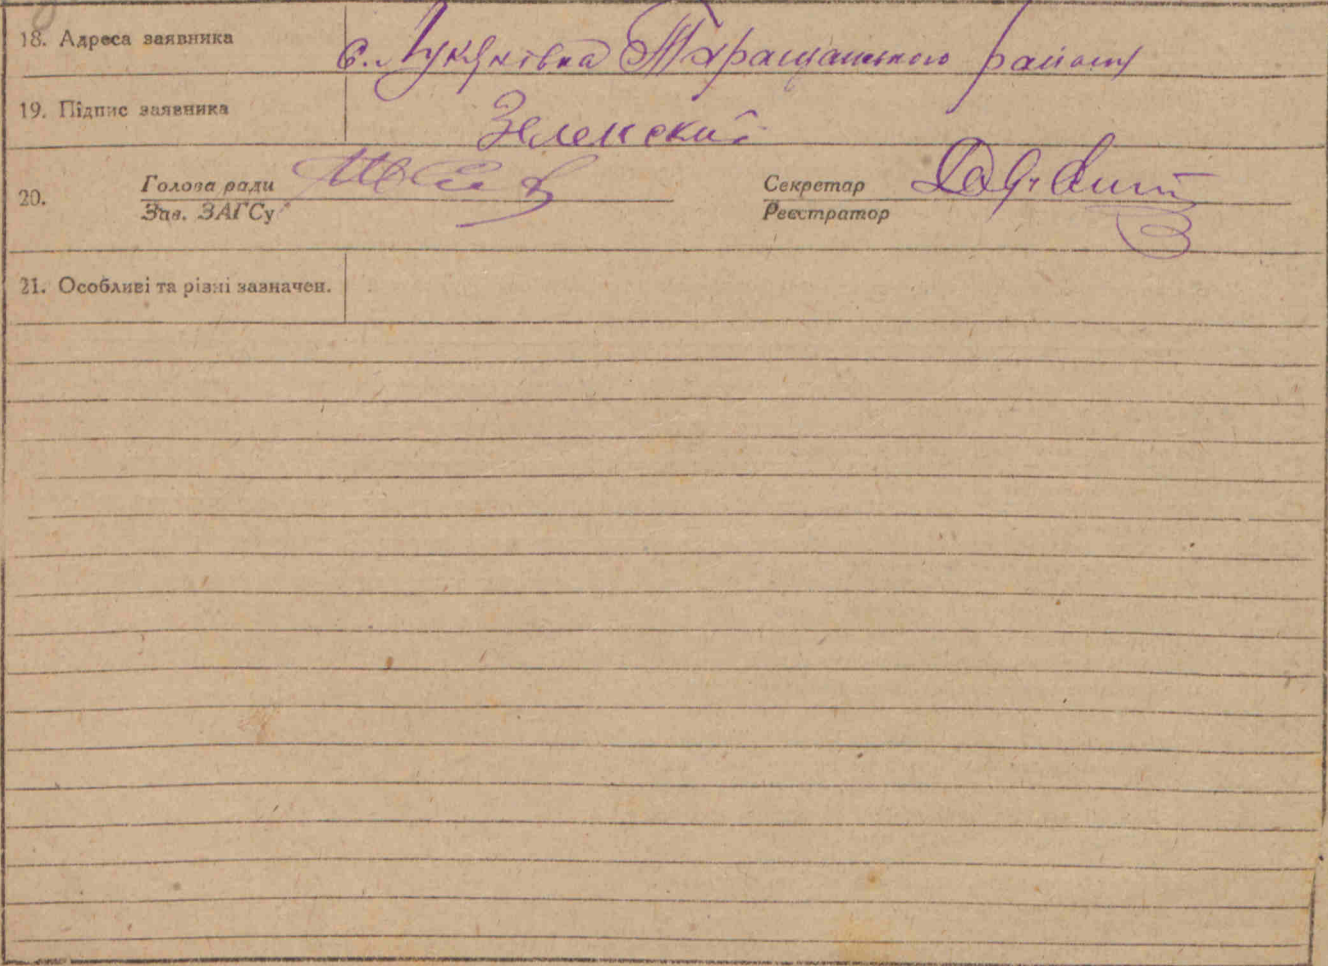 18. Адреса заявника
с. Лукянівка Таращанського району
19. Підпис заявника
Зеленский
20.
Голова ради
Зав. ЗАГСу
Секретар
Реєстратор
21. Особливі та різні зазначен.